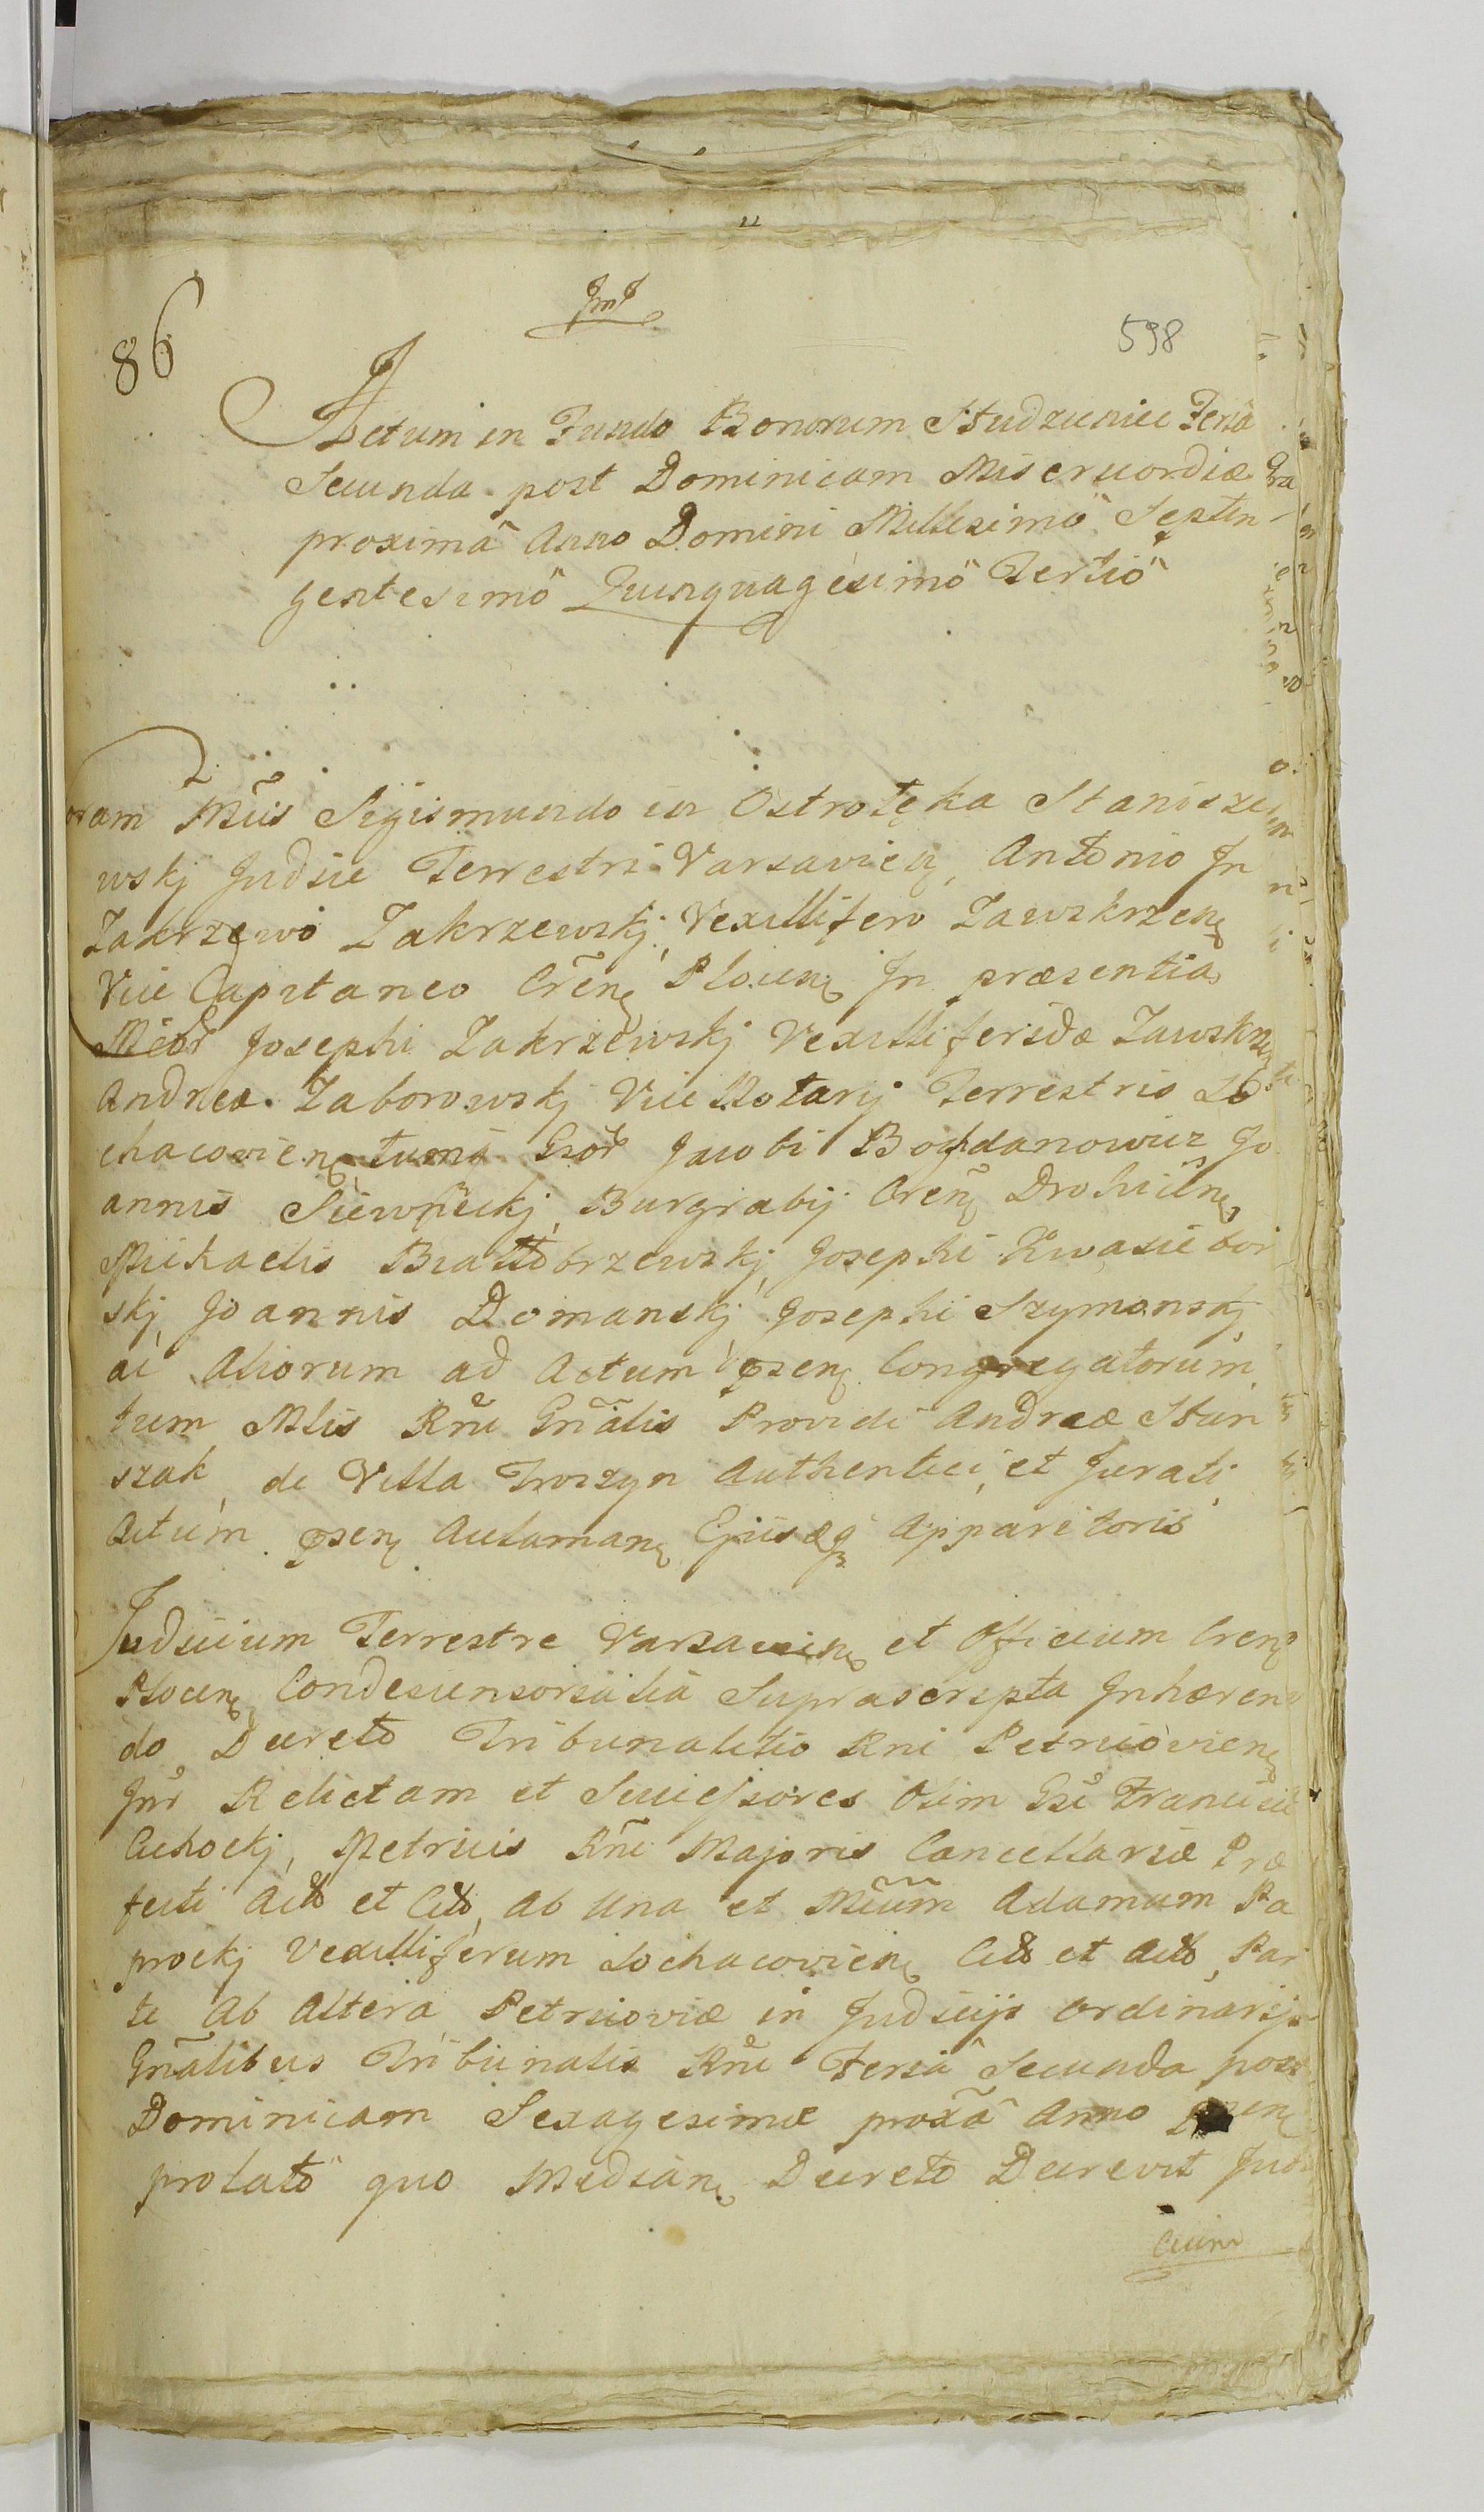 86
598
Actum in Fundo Bonorum Studzieniec Feria
Secunda post Dominicam Misericordiæ
proximâ Anno Domini Millesimö Septin-
gentesimö Quinquagesimö Tertiö
Coram Mcis Sigismundo in Ostrołęka Staniszew
wskj Judice Terrestri Varsavien, Antonio In
Zakrzewo Zakrzewskj, Vexillifero Zawskrzen
Vice Capitaneo Crẽn Plocen In præsentia
Mcor Josephi Zakrzewskj Vexilliferidæ Zawskrzen
Andreæ Zaborowskj Vice Notarij Terrestris So
chacovien tum Gsor Jacobi Bogdanowicz Jo
annis Burgrabij Crẽn Drohicen
Michaelis Białobrzewskj, Josephi Kwasiebor
skj, Joannis Domanskj, Josephi Szymanskj
ac Aliorum ad Actum psen Congregatorum
tum Mlis Rñi Gñalis Providi Andreæ
szak, de Villa Troszyn Authentici, et Jurati
Actum psen Aclaman Ejusdq Apparitoris
Judicium Terrestre Varsavien et Officium Cren
Plocen Condescensorialia Suprascripta Inhæren
do Decreto Tribunalitio Rni Petricovien
Inr Relictam et Successores Olim Gsi Francisci
Cichockj, Metrices Rñi Majoris Cancellariæ Præ
fecti Act et Cit, Ab Una et Mcum Adamum Pa
prockj Vexilliferum Sochacovien Cit et Act, Par
te Ab Altera Petricoviæ in Judicijs ordinarijs
Gñalibus Tribunalis Rñi Feria Secunda post
Dominicam Sexagesimæ proxã Anno psen
prolatö quo Median Decreto Decrevit Judi
cium